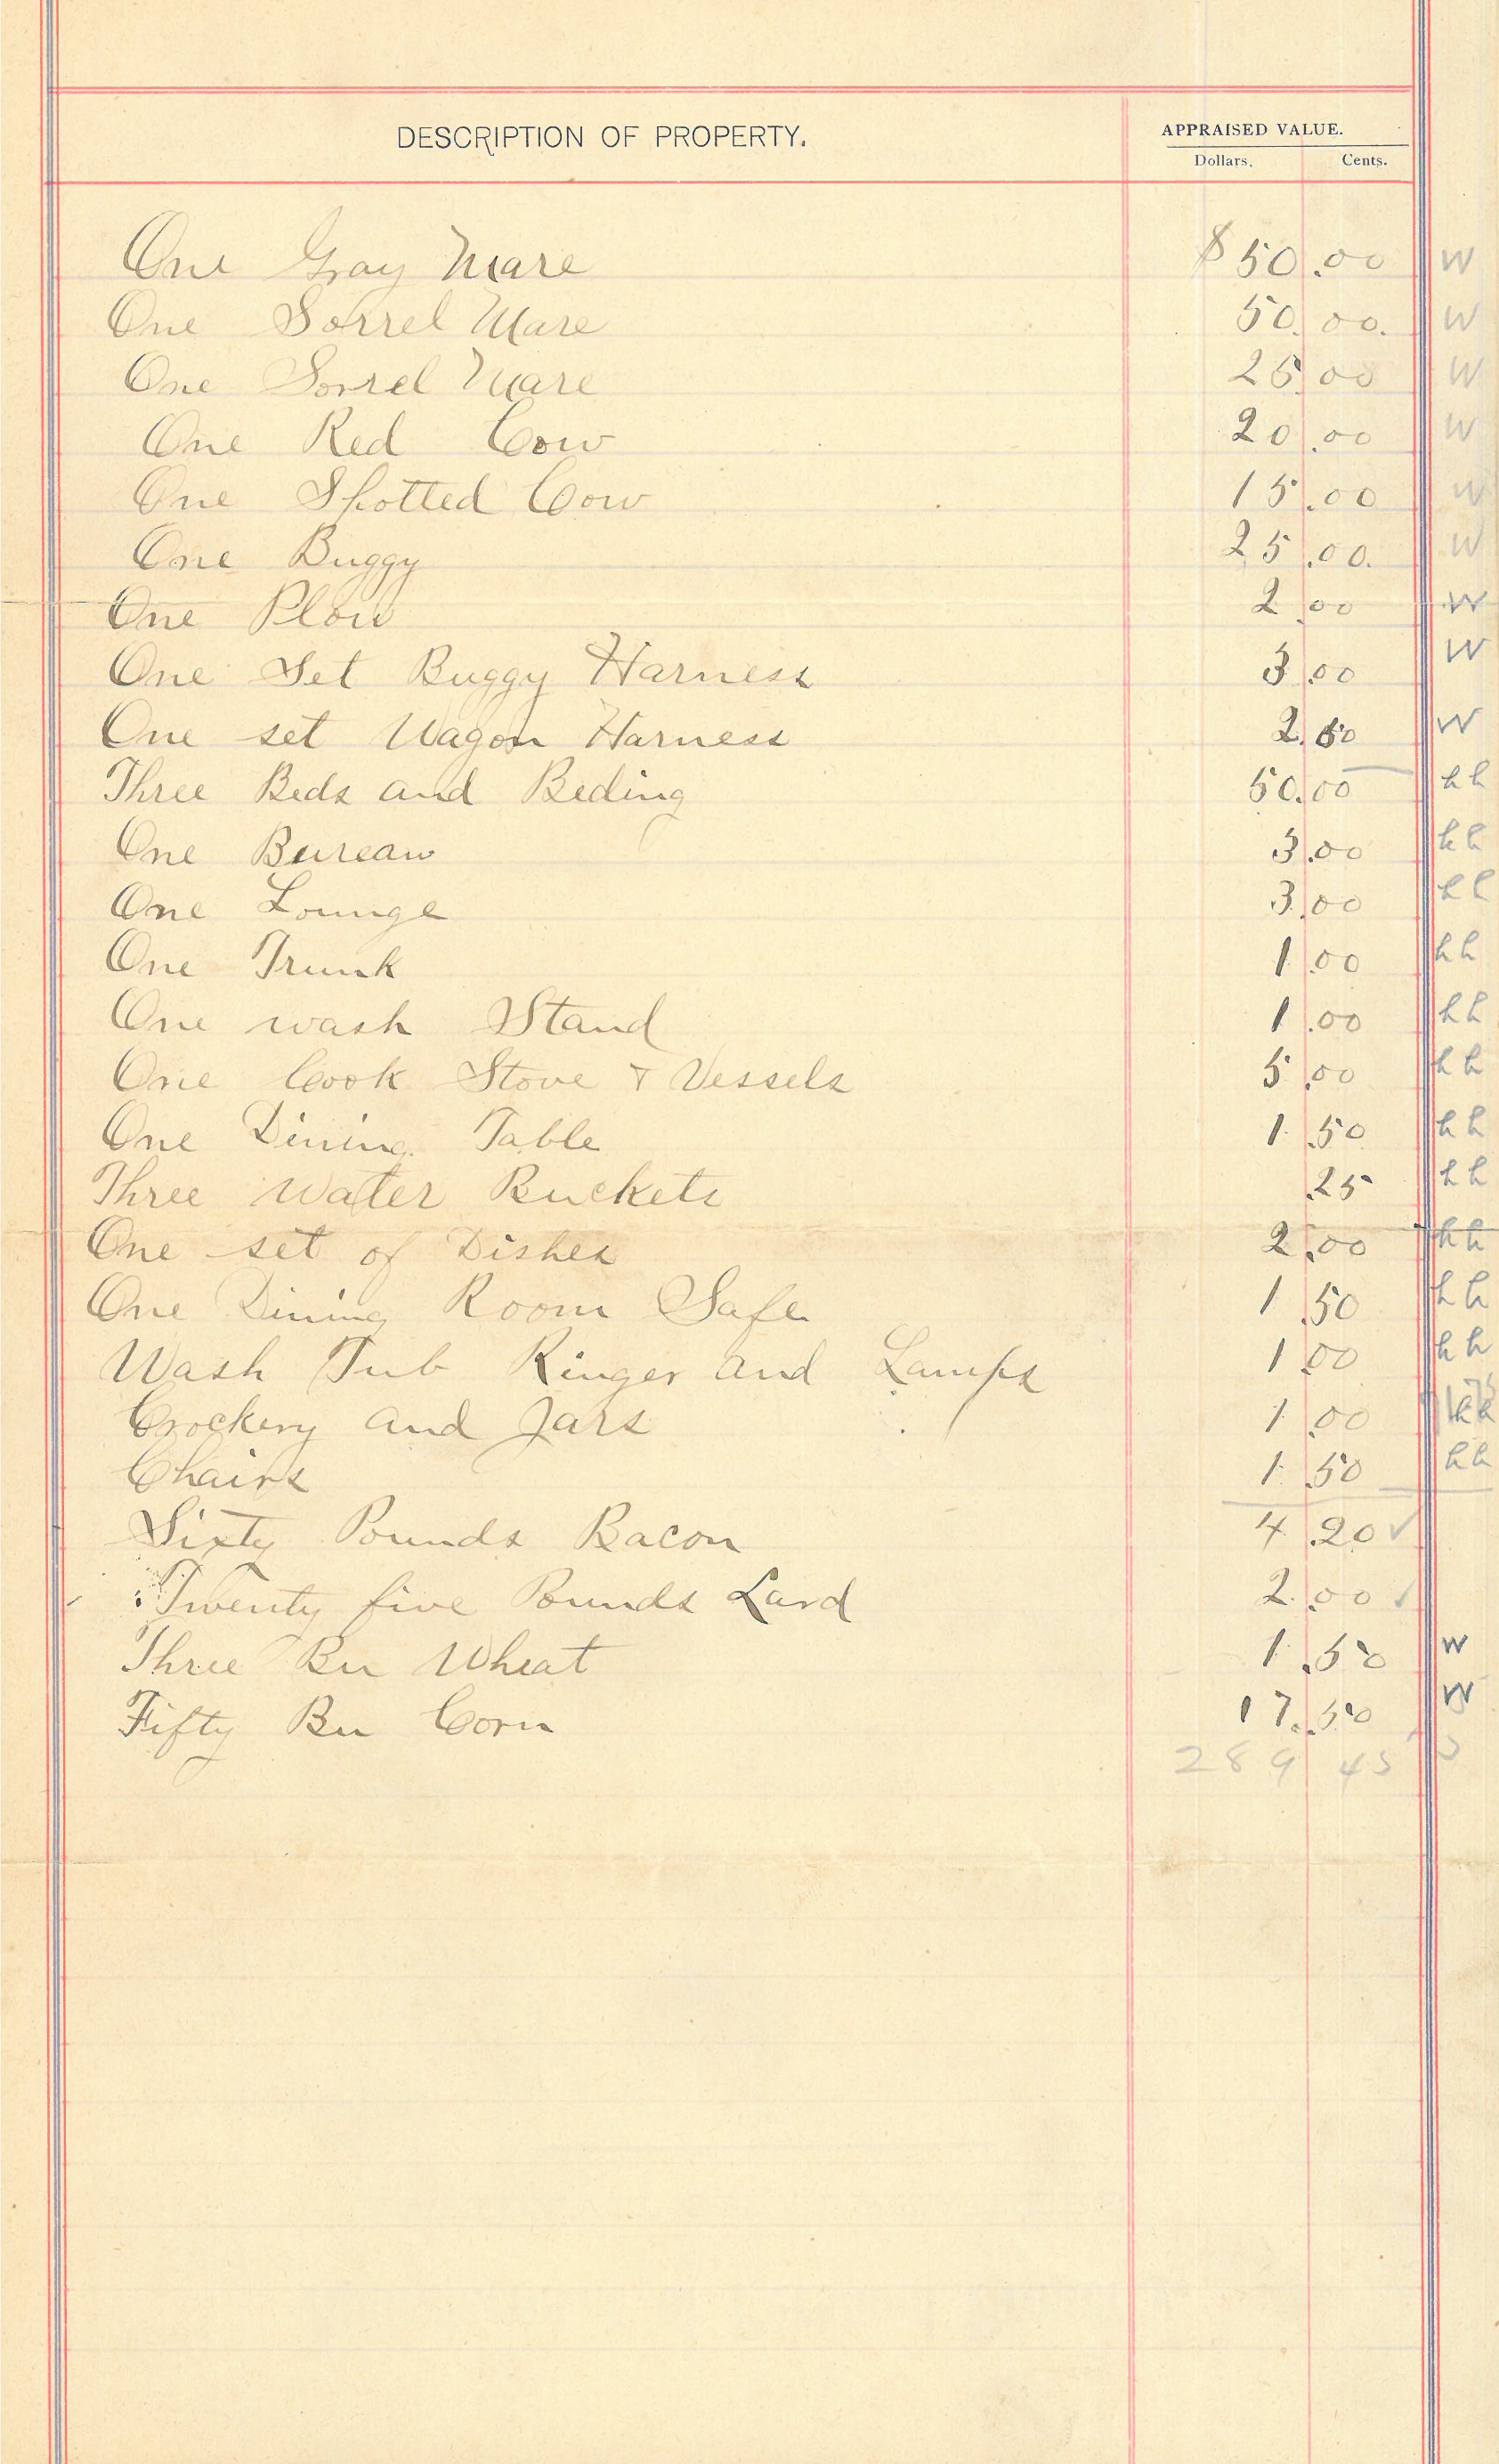 DESCRIPTION OF PROPERTY.
APPRAISED VALUE.
Dollars. Cents.
One Gray Mare $50.00 W
One Sorrel Mare 50.00. W
One Sorrel Mare 25.00 W
One Red Cow 20.00 W
One Spotted Cow 15.00 W
One Buggy 25.00. W
One Plow 2.00 W
One Set Buggy Harness 3.00 W
One set Wagon Harness 2.50 W
Three Beds and Beding 50.00 hh
One Bureau 3.00 hh
One Lounge 3.00 hh
One Trunk 1.00 hh
One wash Stand 1.00 hh
One Cook Stove & Vessels 5.00 hh
One Dining Table 1.50 hh
Three Water Buckets .25 hh
One set of Dishes 2.00 hh
One Dining Room Safe 1.50 hh
Wash Tub Ringer and Lamps 1.00 hh
Crockery and Jars 1.00 hh
Chairs 1.50 hh
Sixty Pounds Bacon 4.20 ✓
Twenty five Pounds Lard 2.00 ✓
Three Bu Wheat 1.50 W
Fifty Bu Corn 17.50 W
289 45